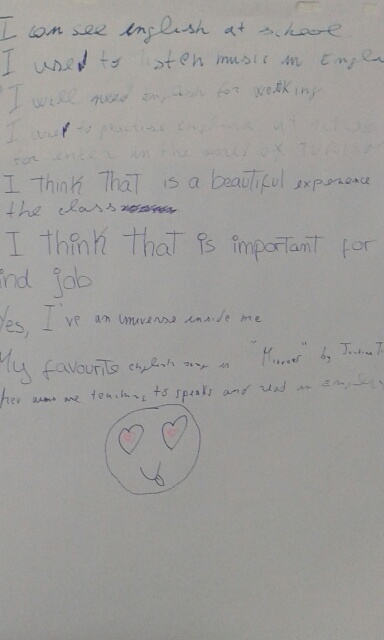 I can see english at school
I used to listen music in Engli
I will need english for working
I used to practise
for enter in the world of
I think That is a beautiful experence
the class
I think that is important for
ind job
Yes, I've an universe inside me
My favourite english song is "Mirrors" by Justin T
me teaching to speaks and read in english